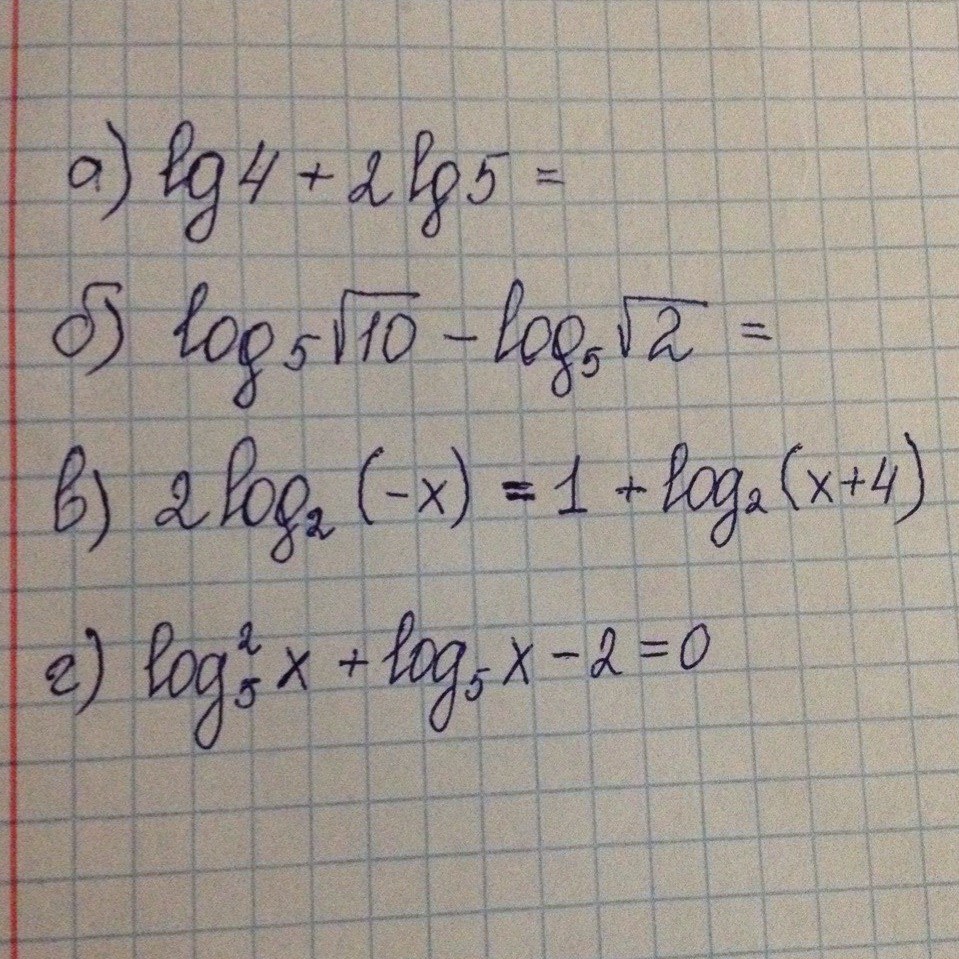 а) lg 4 + 2 lg 5 =
б) log₅√10 − log₅√2 =
в) 2 log₂ (−x) = 1 + log₂ (x+4)
г) log₅² x + log₅ x − 2 = 0